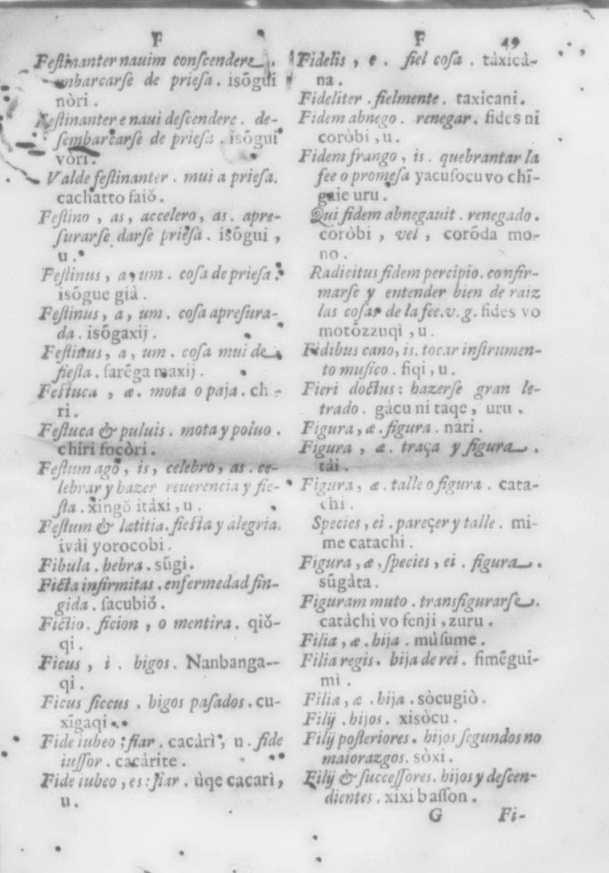 F
Festinanter nauim conscendere.
embarcarse de priesa. isŏgui
nòri.
Festinanter e naui descendere. de-
sembarcarse de priesa. isŏgui
vòri.
Valde festinanter. mui a priesa.
cachatto saiŏ.
Festino, as, accelero, as. apre-
surarse darse priesa. isŏgui,
u.
Festinus, a, um. cosa de priesa.
isŏgue già.
Festinus, a, um. cosa apresura-
da. isŏgaxij.
Festinus, a, um. cosa mui de
fiesta. sarĕga maxij.
Festuca, æ. mota o paja. chi-
ri.
Festuca & puluis. mota y poluo.
chìri focòri.
Festum ago, is, celebro, as. ce-
lebrar y hazer reuerencia y fie-
sta. xingŏ itàxi, u.
Festum & lætitia. fiesta y alegria.
ivài yorocobi.
Fibula. hebra. sŭgi.
Ficta infirmitas. enfermedad fin-
gida. sacubiŏ.
Fictio. ficion, o mentira. qiŏ-
qi.
Ficus, i. higos. Nanbanga-
qi.
Ficus siccus. higos pasados. cu-
xigaqi.
Fide iubeo: fiar. cacàri, u. fide
iussor. cacàrite.
Fide iubeo, es: fiar. ùqe cacarì,
u.
F 49
Fidelis, e. fiel cosa. tàxicà-
na.
Fideliter. fielmente. taxicani.
Fidem abnego. renegar. fides ni
coròbi, u.
Fidem frango, is. quebrantar la
fee o promesa yacusocu vo chī-
gaie uru.
Qui fidem abnegauit. renegado.
coròbi, vel, corŏda mo-
no.
Radicitus fidem percipio. confir-
marse y entender bien de raiz
las cosas de la fee. v. g. fides vo
motŏzzuqì, u.
Fidibus cano, is. tocar instrumen-
to musico. fiqi, u.
Fieri doctus: hazerse gran le-
trado. gàcu ni taqe, uru.
Figura, æ. figura. nàri.
Figura, æ. traça y figura.
tài.
Figura, æ. talle o figura. cata-
chi.
Species, ei. pareçer y talle. mi-
me catachi.
Figura, æ, species, ei. figura.
sŭgàta.
Figuram muto. transfigurarse.
catàchi vo fenji, zuru.
Filia, æ. hija. mùsume.
Filia regis. hija de rei. fimĕgui-
mi.
Filia, æ. hija. sòcugiò.
Filij. hijos. xisòcu.
Filij posteriores. hijos segundos no
maiorazgos. sòxi.
Filij & successores. hijos y descen-
dientes. xixi basson.
G Fi-